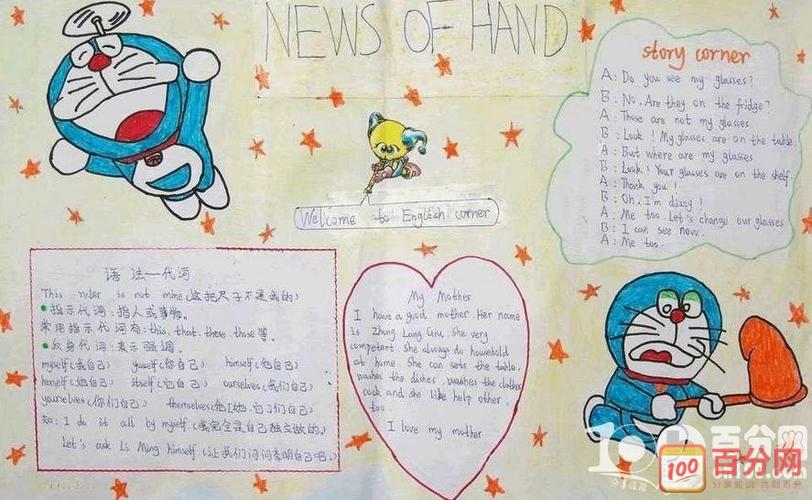 NEWS OF HAND
story corner
A: Do you see my glasses?
B: No. Are they on the fridge?
A: Those are not my glasses.
B: Look! My glasses are on the table.
A: But where are my glasses
B: Look! Your glasses are on the shelf.
A: Thank you!
B: Oh, I'm dizzy!
A: Me too. Let's change our glasses
B: I can see now.
A: Me too.
Welcome to English corner
语法一代词
This ruler is not mine (这把尺子不是我的)
指示代词:指人或事物。
常用指示代词有:this. that. these those等。
反身代词:表示强调。
myself(我自己) yuself(你自己) himself(他自己)
herself(她自己) itself(它自己) ourselves(我们自己)
yourselves(你们自己) themselves(他[她.它]们自己)
如: I do it all by myself(我完全是自己独立做的)
Let's ask Li Ming himself.(让我们问问李明自己吧.)
My Mother
I have a good mother. Her name
is Zhang Lang. She very
competent. She always do household
at home. She can sets the table.
washes the dishes, washes the clothes
cook and she like help other.
too.
I love my mother
百分网
100 百分网